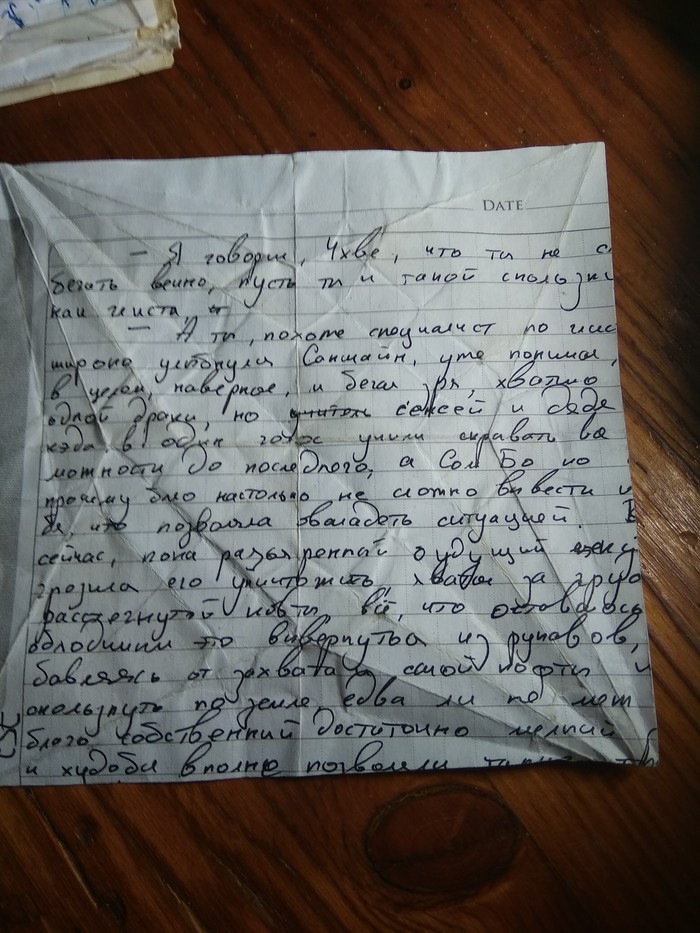 DATE
— Я говорю, Чхве, что ты не с
бегать вечно, пусть ты и такой скользк
как глиста,
— А ты, похоже специалист по глис
широко улыбнулся Саншайн, уже понимая,
в целом, наверное, и бегал зря, хватило
одной драки, но учитель сенсей и дядя
в один голос учили скрывать воз
можности до последнего, а Сол Бо по
прежнему было настолько не сложно вывести и
бя, что позволяла овладеть ситуацией.
сейчас, пока разъяренный будущий
грозился его уничтожить, хватая за груд
расстегнутой кофты, всё, что оставалось
блондину это вывернуться из рукавов,
бавляясь от захвата и самой кофты и
скользнуть по земле, едва ли не
благо собственный достаточно мелкий
и худоба вполне позволяли